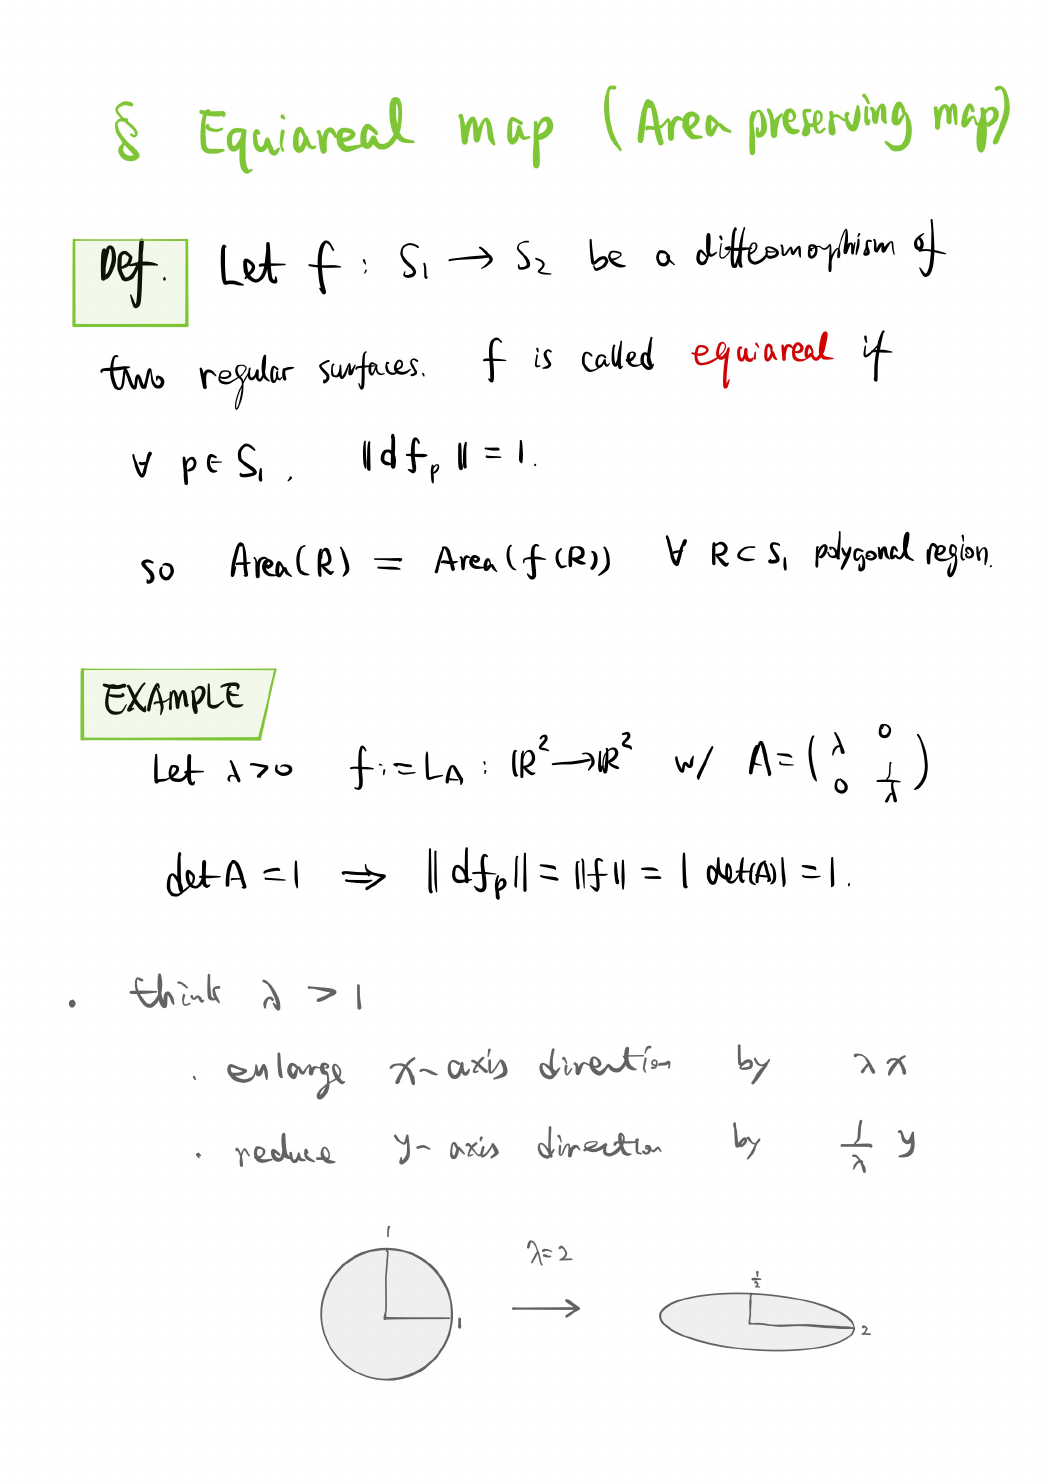 § Equiareal map (Area preserving map)
Def. Let f : S₁ → S₂ be a diffeomorphism of
two regular surfaces. f is called equiareal if
∀ p ∈ S₁ . ‖df_p‖ = 1.
so Area(R) = Area(f(R)) ∀ R ⊂ S₁ polygonal region.
EXAMPLE
Let λ>0 f := L_A : ℝ² → ℝ² w/ A = (λ 0; 0 1/λ)
det A = 1 ⇒ ‖df_p‖ = ‖f‖ = |det(A)| = 1.
· think λ > 1
· enlarge x-axis direction by λx
· reduce y-axis direction by 1/λ y
1
λ=2
1/2
1
2